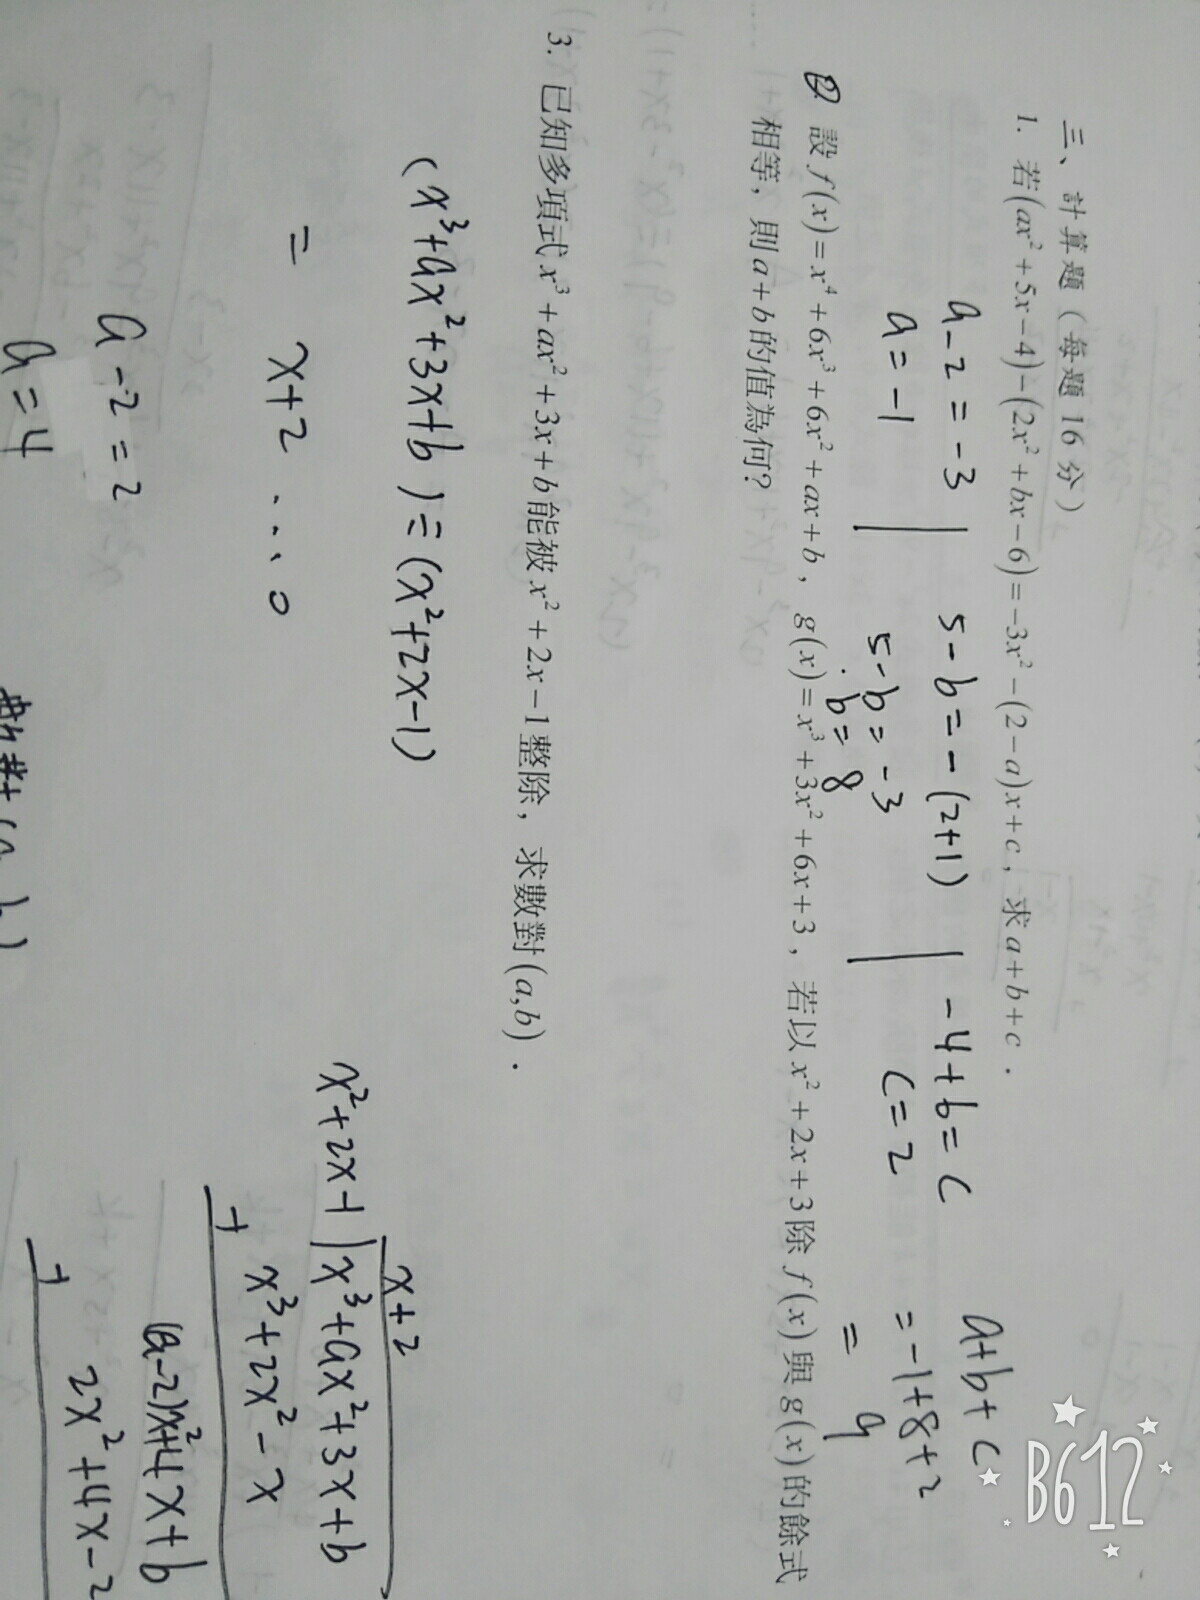 三、計算題（每題16分）
1. 若(ax²+5x−4)−(2x²+bx−6)=−3x²−(2−a)x+c，求a+b+c．
a−2=−3 | 5−b=−(2+1) | −4+6=c
a=−1
5−b=−3
b=8
c=2
a+b+c
=−1+8+2
=9
2. 設f(x)=x⁴+6x³+6x²+ax+b，g(x)=x³+3x²+6x+3，若以x²+2x+3除f(x)與g(x)的餘式
相等，則a+b的值為何?
3. 已知多項式x³+ax²+3x+b能被x²+2x−1整除，求數對(a,b)．
(x³+ax²+3x+b)÷(x²+2x−1)
= x+2 ... 0
a−2=2
a=4
x+2
x²+2x−1 x³+ax²+3x+b
x³+2x²−x
(a−2)x²+4x+b
2x²+4x−2
B612